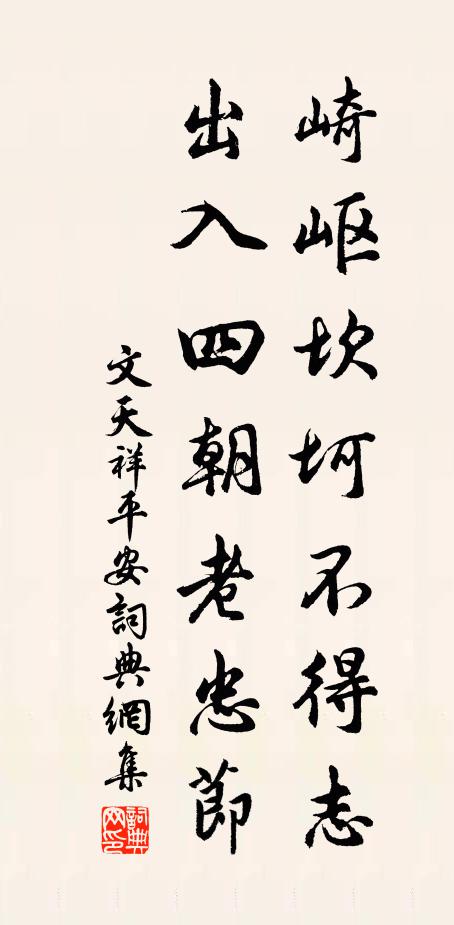 崎岖坎坷不得志
出入四朝老忠節
文天祥平安詞典網集
詞典網印